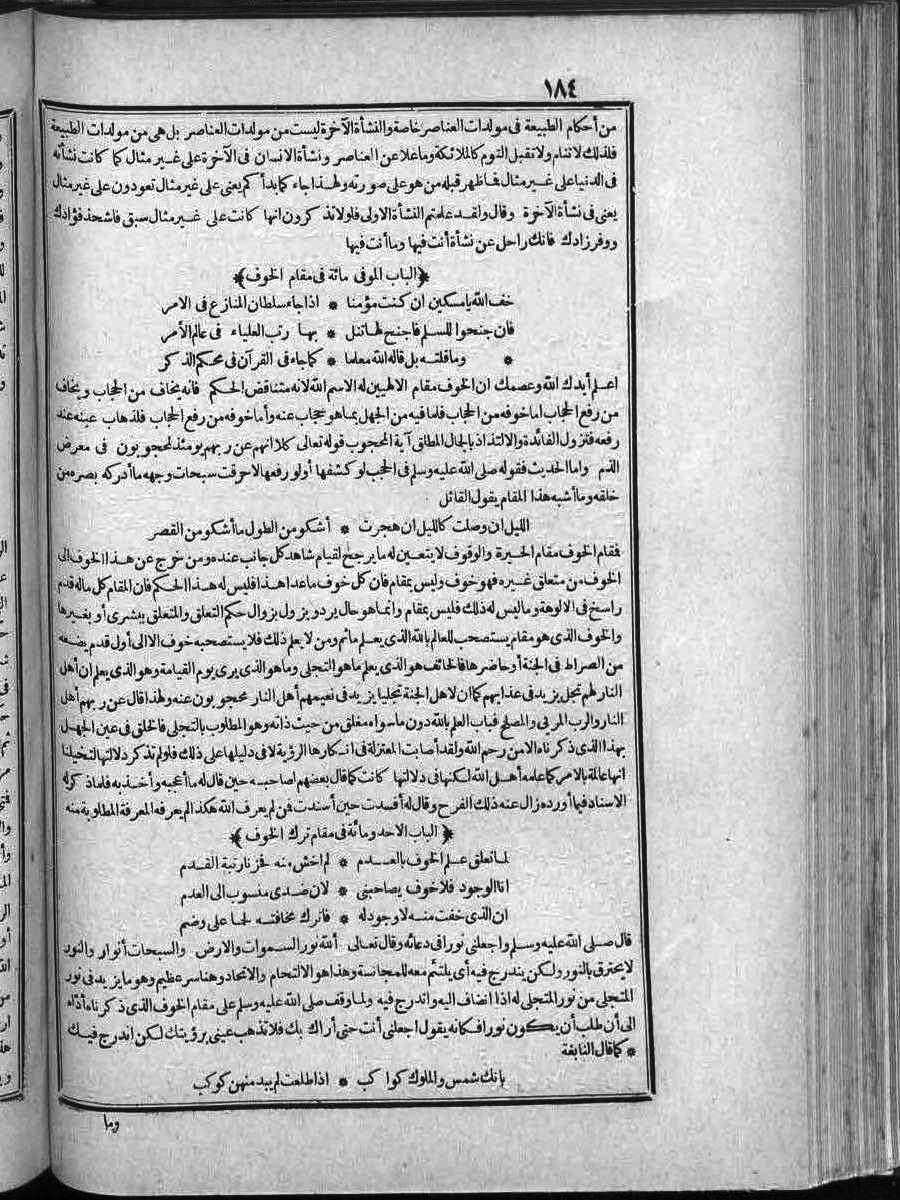 ١٨٤
من أحكام الطبيعة فى مولدات العناصر خاصة والنشأة الآخرة ليست من مولدات العناصر بل هى من مولدات الطبيعة
فلذلك لا تنام ولا تقبل النوم كالملائكة وما علا عن العناصر ونشأة الانسان فى الآخرة على غير مثال كما كانت نشأته
فى الدنيا على غير مثال فما ظهر قبله من هو على صورته ولهذا جاء كما بدأكم يعنى على غير مثال تعودون على غير مثال
يعنى فى نشأة الآخرة وقال ولقد علمتم النشأة الاولى فلولا تذكرون انها كانت على غير مثال سبق فاشحذ فؤادك
ووفر زادك فانك راحل عن نشأة أنت فيها وما أنت فيها
﴿الباب الموفى مائة فى مقام الخوف﴾
خف الله يا مسكين ان كنت مؤمنا * اذا جاء سلطان المنازع فى الامر
فان جنحوا للسلم فاجنح لها تنل * بها رتب العلياء فى عالم الأمر
* وما قلته بل قاله الله معلما * كما جاء فى القرآن فى محكم الذكر
اعلم أيدك الله وعصمك ان الخوف مقام الالهيين له الاسم الله لانه متناقض الحكم فانه يخاف من الحجاب ويخاف
من رفع الحجاب اما خوفه من الحجاب فلما فيه من الجهل بما هو حجاب عنه وأما خوفه من رفع الحجاب فلذهاب عينه عند
رفعه فتزول الفائدة والالتذاذ بالجمال المطلق آية المحجوب قوله تعالى كلا انهم عن ربهم يومئذ لمحجوبون فى معرض
الذم واما الحديث فقوله صلى الله عليه وسلم فى الحجب لو كشفها أو لو رفعها لاحرقت سبحات وجهه ما أدركه بصره من
خلقه وما أشبه هذا المقام بقول القائل
الليل ان وصلت كالليل ان هجرت * أشكو من الطول ما أشكو من القصر
فمقام الخوف مقام الحيرة والوقوف لا يتعين له ما يرجح لقيام شاهد كل جانب عنده ومن خرج عن هذا الخوف الى
الخوف من متعلق غيره فهو خوف وليس بمقام فان كل خوف ما عدا هذا فليس له هذا الحكم فان المقام كل ما له قدم
راسخ فى الالوهة وما ليس له ذلك فليس بمقام وانما هو حال يرد ويزول بزوال حكم التعلق والمتعلق ببشرى أو بغيرها
والخوف الذى هو مقام يستصحب للعالم بالله الذى يعلم ما ثم ومن لا يعلم ذلك فلا يستصحبه خوف الا الى أول قدم يضعه
من الصراط فى الجنة أو حاضرها فالخائف هو الذى يعلم ما هو التجلى وما هو الذى يرى يوم القيامة وهو الذى يعلم ان أهل
النار لهم تجل يزيد فى عذابهم كما ان لاهل الجنة تجليا يزيد فى نعيمهم أهل النار محجوبون عنه ولهذا قال عن ربهم أهل
النار والرب المربى والمصلح فباب العلم بالله دون ما سواه مغلق من حيث ذاته وهو المطلوب بالتجلى فالخلق فى عين الجهل
بهذا الذى ذكرناه الا من رحم الله ولقد أصابت المعتزلة فى انكارها الرؤية لا فى دليلها على ذلك فلو لم تذكر دلالتها لتخيلنا
انها عالمة بالامر كما علمه أهل الله لكنها فى دلالتها كانت كما قال بعضهم لصاحبه حين قال له ما أعجبه وأخذ به فلما ذكر له
الاسناد فيما أورده زال عنه ذلك الفرح وقال له أفسدت حين أسندت فمن لم يعرف الله هكذا لم يعرفه المعرفة المطلوبة منه
﴿الباب الاحد ومائة فى مقام ترك الخوف﴾
لما تعلق علم الخوف بالعدم * لم اخش منه فخزنا رتبة القدم
انا الوجود فلا خوف يصاحبنى * لان ضدى منسوب الى العدم
ان الذى خفت منه لا وجود له * فاترك مخافته لحما على وضم
قال صلى الله عليه وسلم واجعلنى نورا فى دعائه وقال تعالى الله نور السموات والارض والسبحات أنوار والنور
لا يحترق بالنور ولكن يندرج فيه أى يلتئم معه للمجانسة وهذا هو الالتحام والاتحاد وهنا سر عظيم وهو ما يزيد فى نور
المتجلى من نور المتجلى له اذا انضاف اليه واندرج فيه ولما وقف صلى الله عليه وسلم على مقام الخوف الذى ذكرناه أدّاه
الى أن طلب أن يكون نورا فكانه يقول اجعلنى أنت حتى أراك بك فلا تذهب عينى برؤيتك لكن اندرج فيك
* كما قال النابغة
بانك شمس والملوك كواكب * اذا طلعت لم يبد منهن كوكب
وما